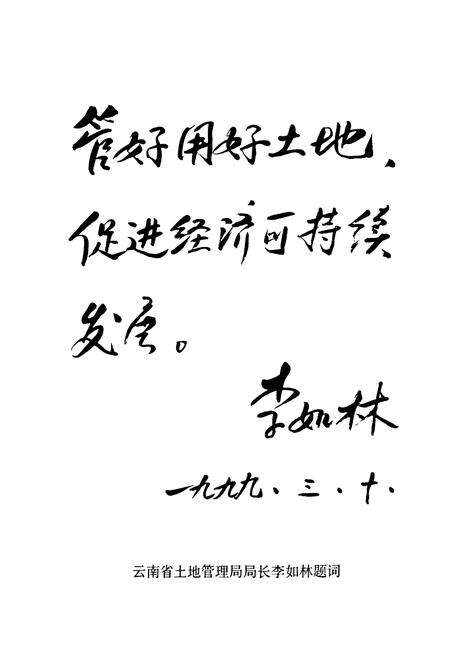 管好用好土地、
促进经济可持续
发展。
李如林
一九九九、三、十、
云南省土地管理局局长李如林题词